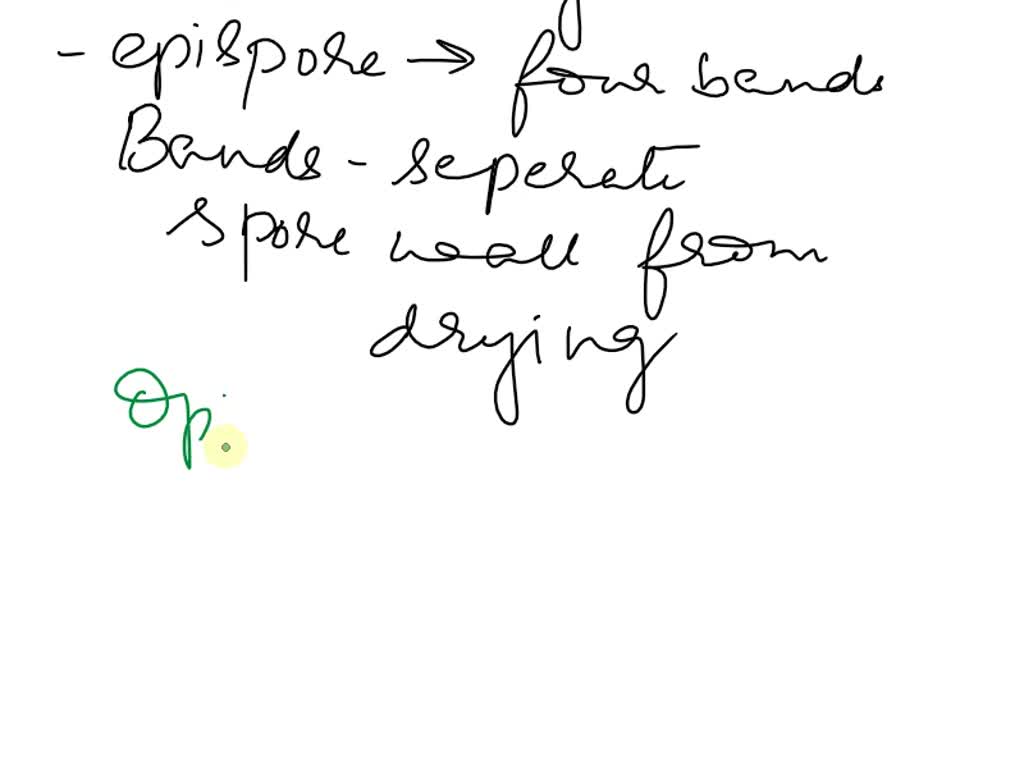 - epispore → four bands
Bands - seperate
spore wall from
drying
Op